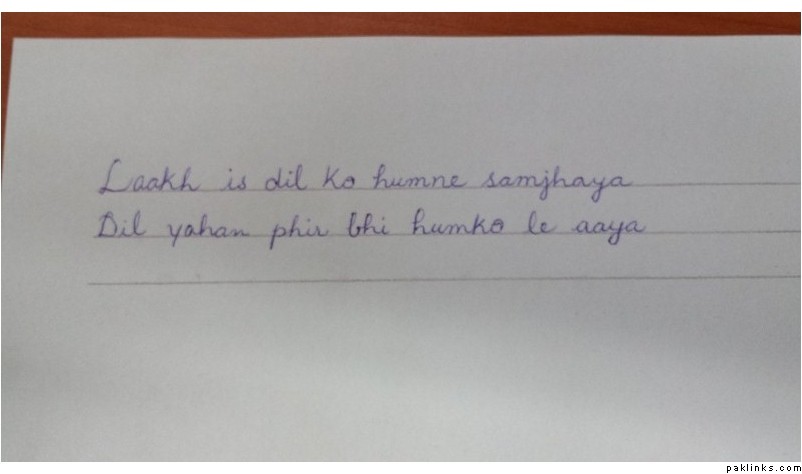 Laakh is dil ko humne samjhaya
Dil yahan phir bhi humko le aaya
paklinks.com